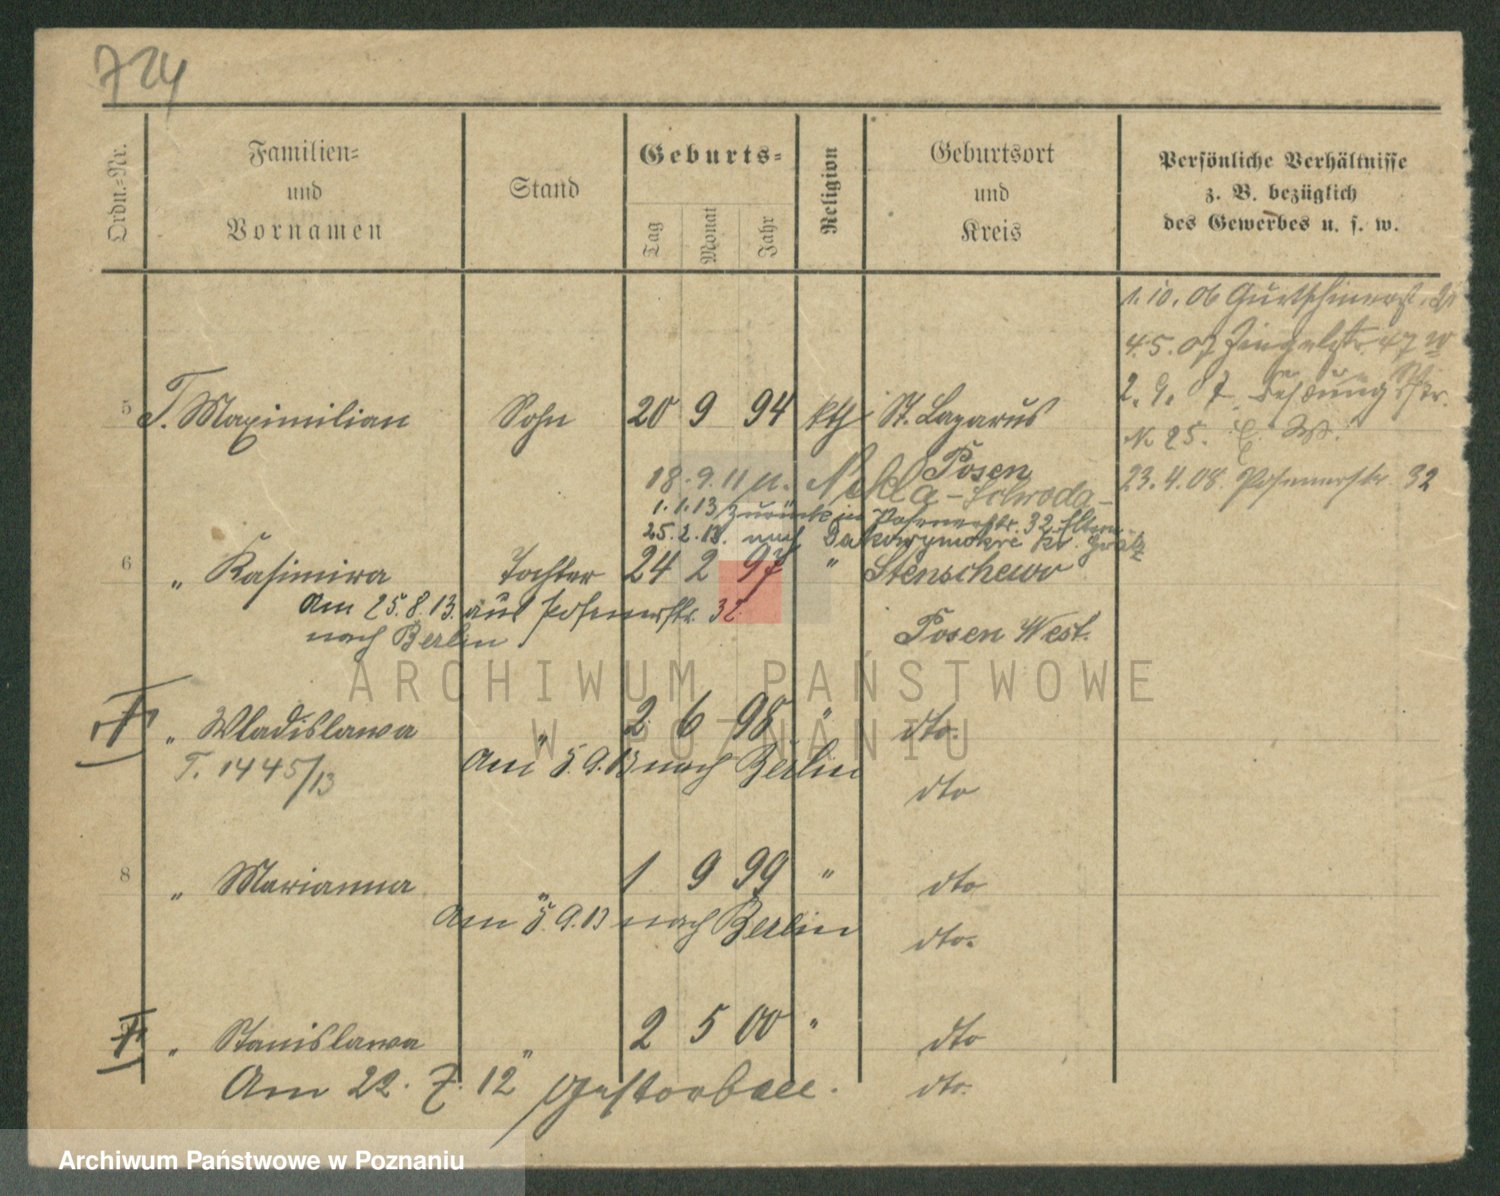 724
Ordn.-Nr.
Familien-
und
Vornamen
Stand
Geburts-
Tag
Monat
Jahr
Religion
Geburtsort
und
Kreis
Persönliche Verhältnisse
z. B. bezüglich
des Gewerbes u. s. w.
1.10.06 Gurtschinerstr.
4.5.07
2.9.07
N 25.
23.4.08. Posenerstr 32
5 T. Maximilian Sohn 20 9 94 kth St. Lazarus
Posen
18.9.11 n. Nekla-Schroda-
1.1.13 zurück in Posenerstr. 32 Eltern
25.2.13. nach Dakowymokre Kr. Grätz
6 " Kasimira Tochter 24 2 97 " Stenschewo
Am 25.8.13. aus Posenerstr. 32
nach Berlin
Posen West.
ARCHIWUM PAŃSTWOWE
W POZNANIU
" Wladislawa " 2 6 98 " dto.
T. 1445/13
Am 5.9.13 nach Berlin
dto
8 " Marianna " 1 9 99 " dto
Am 5.9.13 nach Berlin
dto.
" Stanislawa " 2 5 00 " dto
Am 22.7.12 gestorben.
dto.
Archiwum Państwowe w Poznaniu